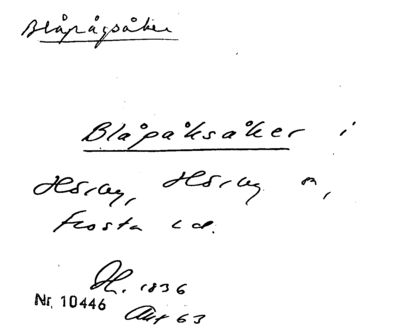 Blåpågsåker
Blåpåksåker i
Hörby, Hörby sn,
Frosta hd.
H. 1836
Nr. 10446
Akt 63